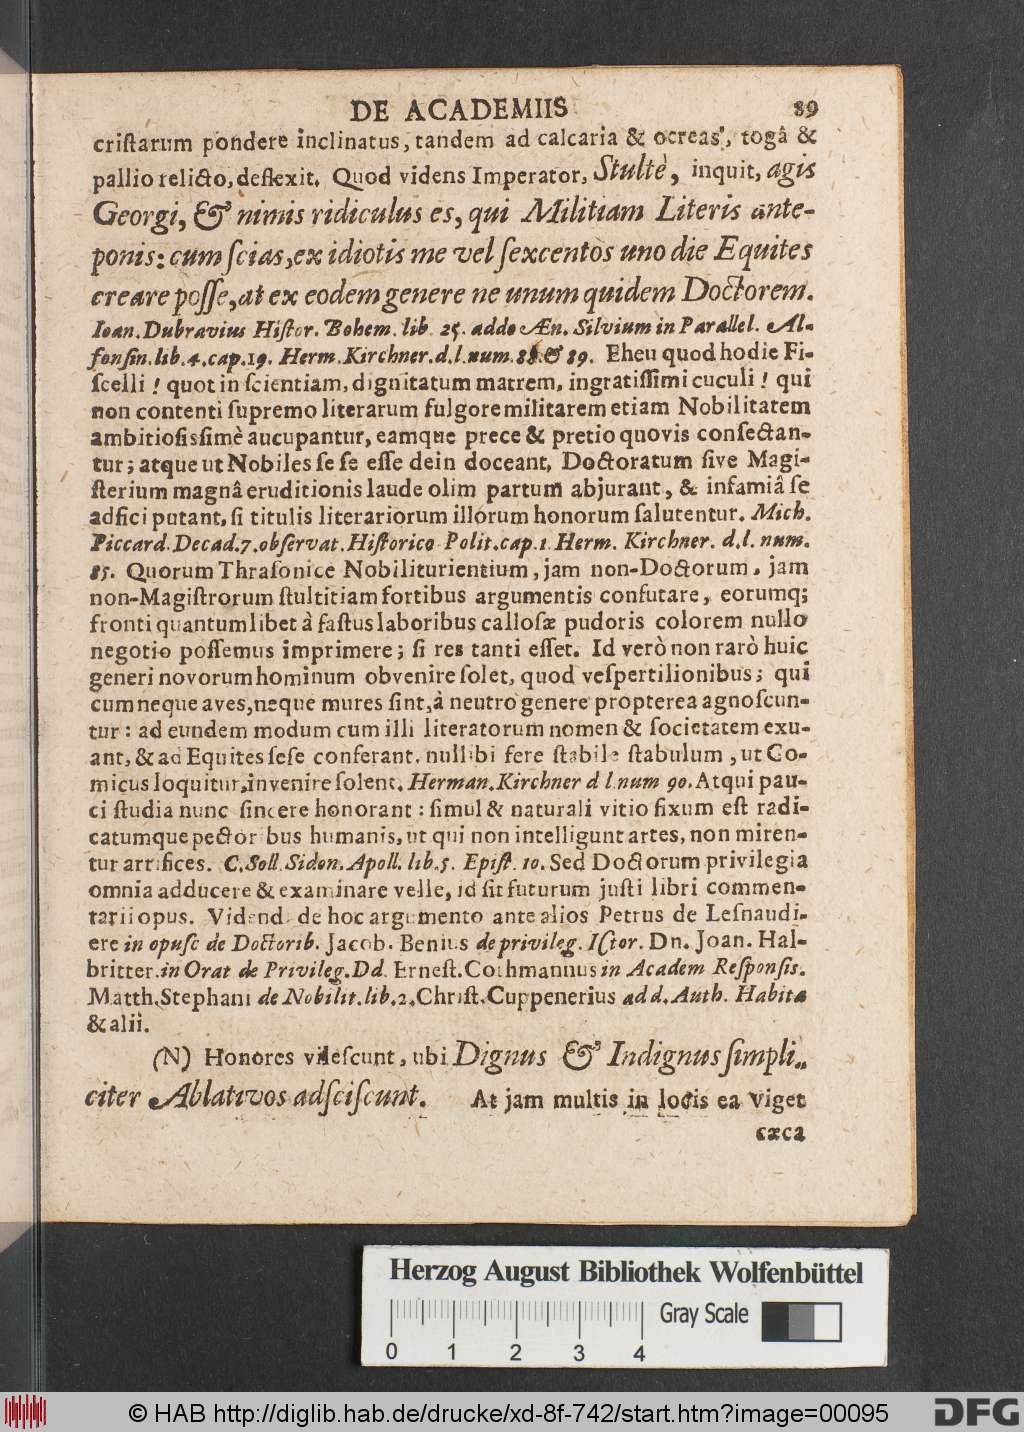 DE ACADEMIIS 89
criſtarum pondere inclinatus, tandem ad calcaria & ocreas, togâ &
pallio relicto, deflexit. Quod videns Imperator, Stultè, inquit, agis
Georgi, & nimis ridiculus es, qui Militiam Literis ante-
ponis: cum ſcias, ex idiotis me vel ſexcentos uno die Equites
creare poſſe, at ex eodem genere ne unum quidem Doctorem.
Ioan. Dubravius Hiſtor. Bohem. lib. 25. adde Æn. Silvium in Parallel. Al-
fonſin. lib. 4. cap. 19. Herm. Kirchner. d. l. num. 88. & 89. Eheu quod hodie Fi-
ſcelli! quot in ſcientiam, dignitatum matrem, ingratiſſimi cuculi! qui
non contenti ſupremo literarum fulgore militarem etiam Nobilitatem
ambitioſisſimè aucupantur, eamque prece & pretio quovis conſectan-
tur; atque ut Nobiles ſe ſe eſſe dein doceant, Doctoratum ſive Magi-
ſterium magnâ eruditionis laude olim partum abjurant, & infamiâ ſe
adfici putant, ſi titulis literariorum illorum honorum ſalutentur. Mich.
Piccard. Decad. 7. obſervat. Hiſtorico Polit. cap. 1. Herm. Kirchner. d. l. num.
85. Quorum Thraſonice Nobiliturientium, jam non-Doctorum, jam
non-Magiſtrorum ſtultitiam fortibus argumentis confutare, eorumq;
fronti quantumlibet à faſtus laboribus calloſæ pudoris colorem nullo
negotio poſſemus imprimere; ſi res tanti eſſet. Id verò non rarò huic
generi novorum hominum obvenire ſolet, quod veſpertilionibus; qui
cum neque aves, neque mures ſint, à neutro genere propterea agnoſcun-
tur: ad eundem modum cum illi literatorum nomen & ſocietatem exu-
ant, & ad Equites ſeſe conferant, nullibi fere ſtabile ſtabulum, ut Co-
micus loquitur, invenire ſolent. Herman. Kirchner d l. num 90. Atqui pau-
ci ſtudia nunc ſincere honorant: ſimul & naturali vitio fixum eſt radi-
catumque pectoribus humanis, ut qui non intelligunt artes, non miren-
tur artifices. C. Soll. Sidon. Apoll. lib. 5. Epiſt. 10. Sed Doctorum privilegia
omnia adducere & examinare velle, id ſit futurum juſti libri commen-
tarii opus. Vidend. de hoc argumento ante alios Petrus de Leſnaudi-
ere in opuſc de Doctorib. Jacob. Benius de privileg. ICtor. Dn. Joan. Hal-
britter. in Orat de Privileg. Dd. Erneſt. Cothmannus in Academ Reſponſis.
Matth. Stephani de Nobilit. lib. 2. Chriſt. Cuppenerius ad d. Auth. Habita
& alii.
(N) Honores vileſcunt, ubi Dignus & Indignus ſimpli-
citer Ablativos adſciſcunt. At jam multis in locis ea viget
cæca
Herzog August Bibliothek Wolfenbüttel
Gray Scale
0 1 2 3 4
© HAB http://diglib.hab.de/drucke/xd-8f-742/start.htm?image=00095
DFG